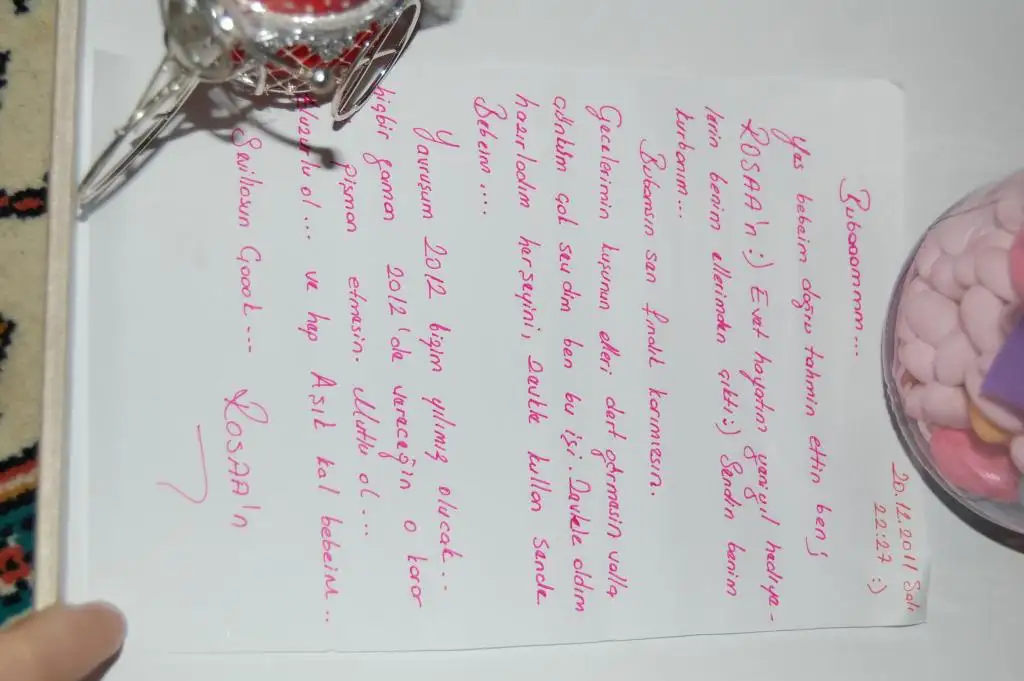 20.12.2011 Salı
22:27 :)
Bubaaammm...
Yes bebeim doğru tahmin ettin ben;
ROSAA'n :) Evet hayatım yeniyıl hediye-
lerin benim ellerimden çıktı :) Sendin benim
kurbanım...
Bubamsın sen fındık kurmusın.
Gecelerimin kuşunun elleri dert görmesin valla
çünküm çok sevdim ben bu işi. Zevkle aldım
hazırladım herşeyini, Zevkle kullan sende
Bebeim....
Yavruşum 2012 bizim yılımız olucak...
hiçbir zaman 2012'de vereceğin o karar
pişman etmesin. Mutlu ol....
Huzurlu ol... ve hep Aşık kal bebeim..
Seviliosun Çoook... ROSAA'n